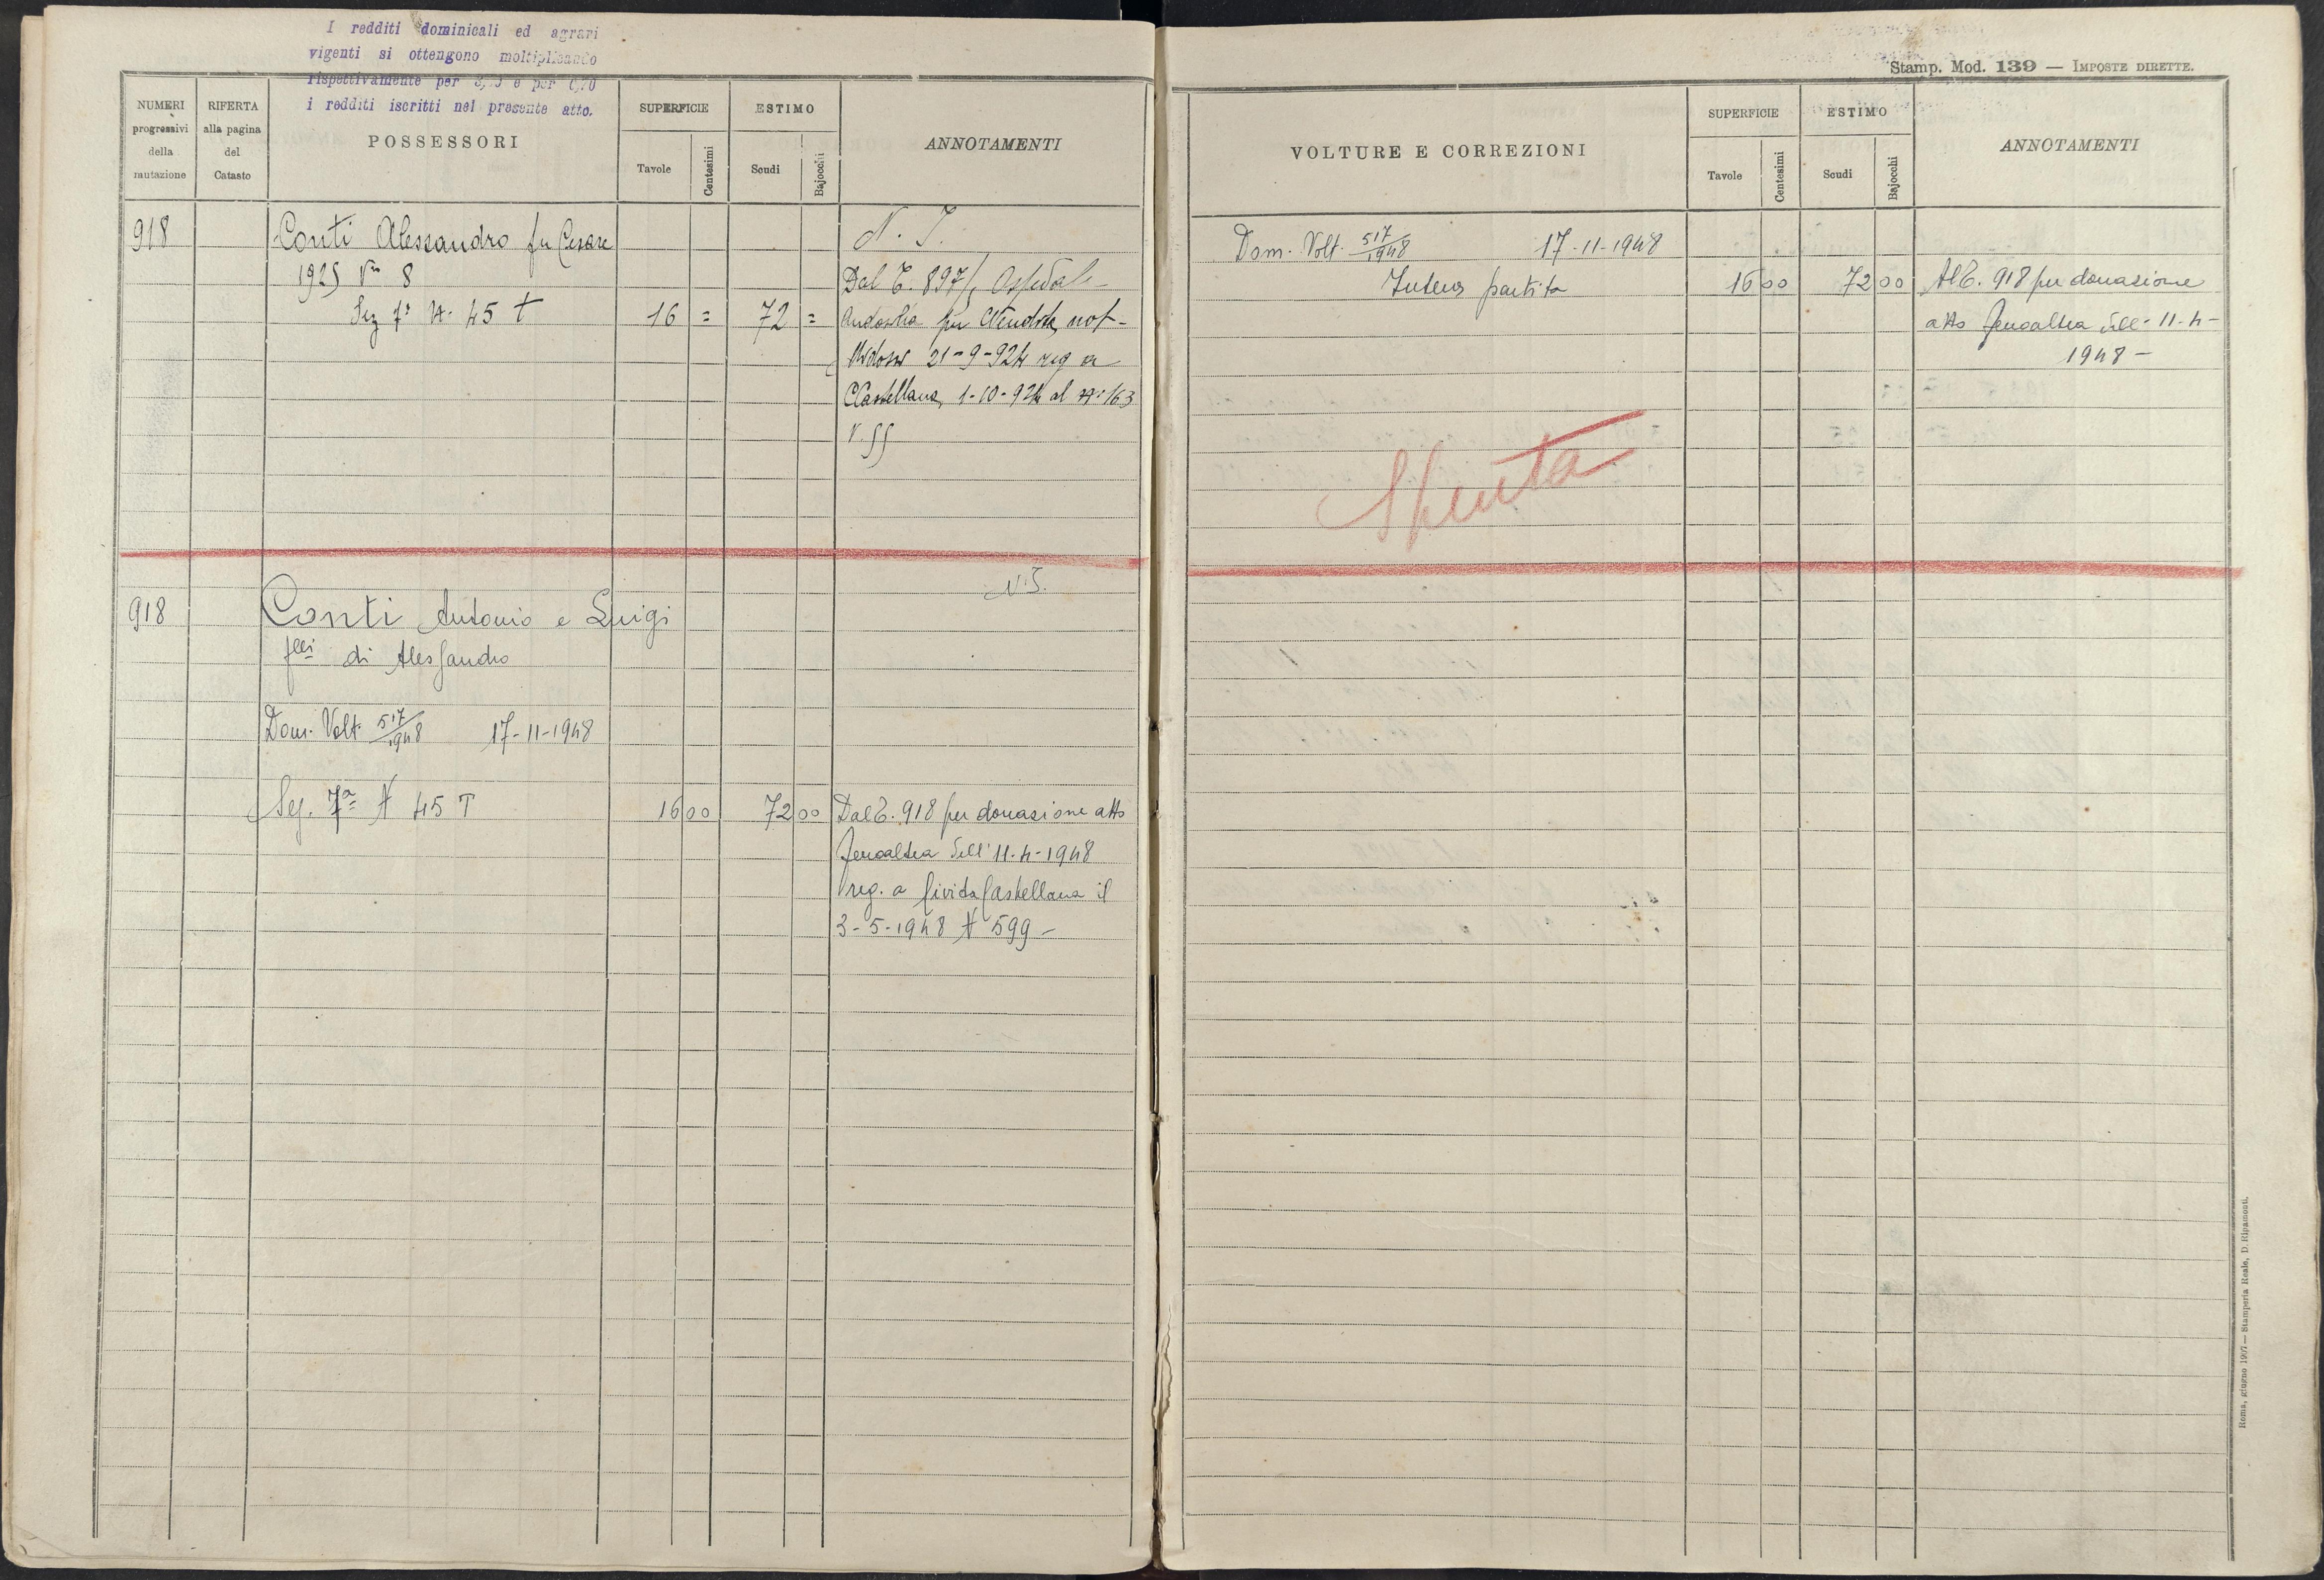 I redditi dominicali ed agrari
vigenti si ottengono moltiplicando
rispettivamente per e per
i redditi iscritti nel presente atto.
NUMERI progressivi della mutazione
RIFERTA alla pagina del Catasto
POSSESSORI
SUPERFICIE
Tavole
Centesimi
ESTIMO
Scudi
Bajocchi
ANNOTAMENTI
918 Conti Alessandro fu Cesare N. I.
1925 Vra 8 Dal T. 897/1 Ospedale
Sez 7a N. 45 t 16 = 72 = per Vendita not-
21-9-924 reg a
CCastellana, 1-10-924 al N. 163
V. 55
918 Conti Antonio e Luigi N. I.
flli di Alessandro
Dom. Volt. 517/1948 17-11-1948
Sez. 7a N 45 T 16 00 72 00 Dal T. 918 per donazione atto
dell' 11-4-1948
reg. a Civita Castellana il
3-5-1948 N 599 -
Stamp. Mod. 139 — IMPOSTE DIRETTE.
VOLTURE E CORREZIONI
SUPERFICIE
Tavole
Centesimi
ESTIMO
Scudi
Bajocchi
ANNOTAMENTI
Dom. Volt. 517/1948 17-11-1948
Intera partita 16 00 72 00 Al T. 918 per donazione
atto dell' 11-4-
1948 -
Spenta
Roma, giugno 1907 — Stamperia Reale, D. Ripamonti.